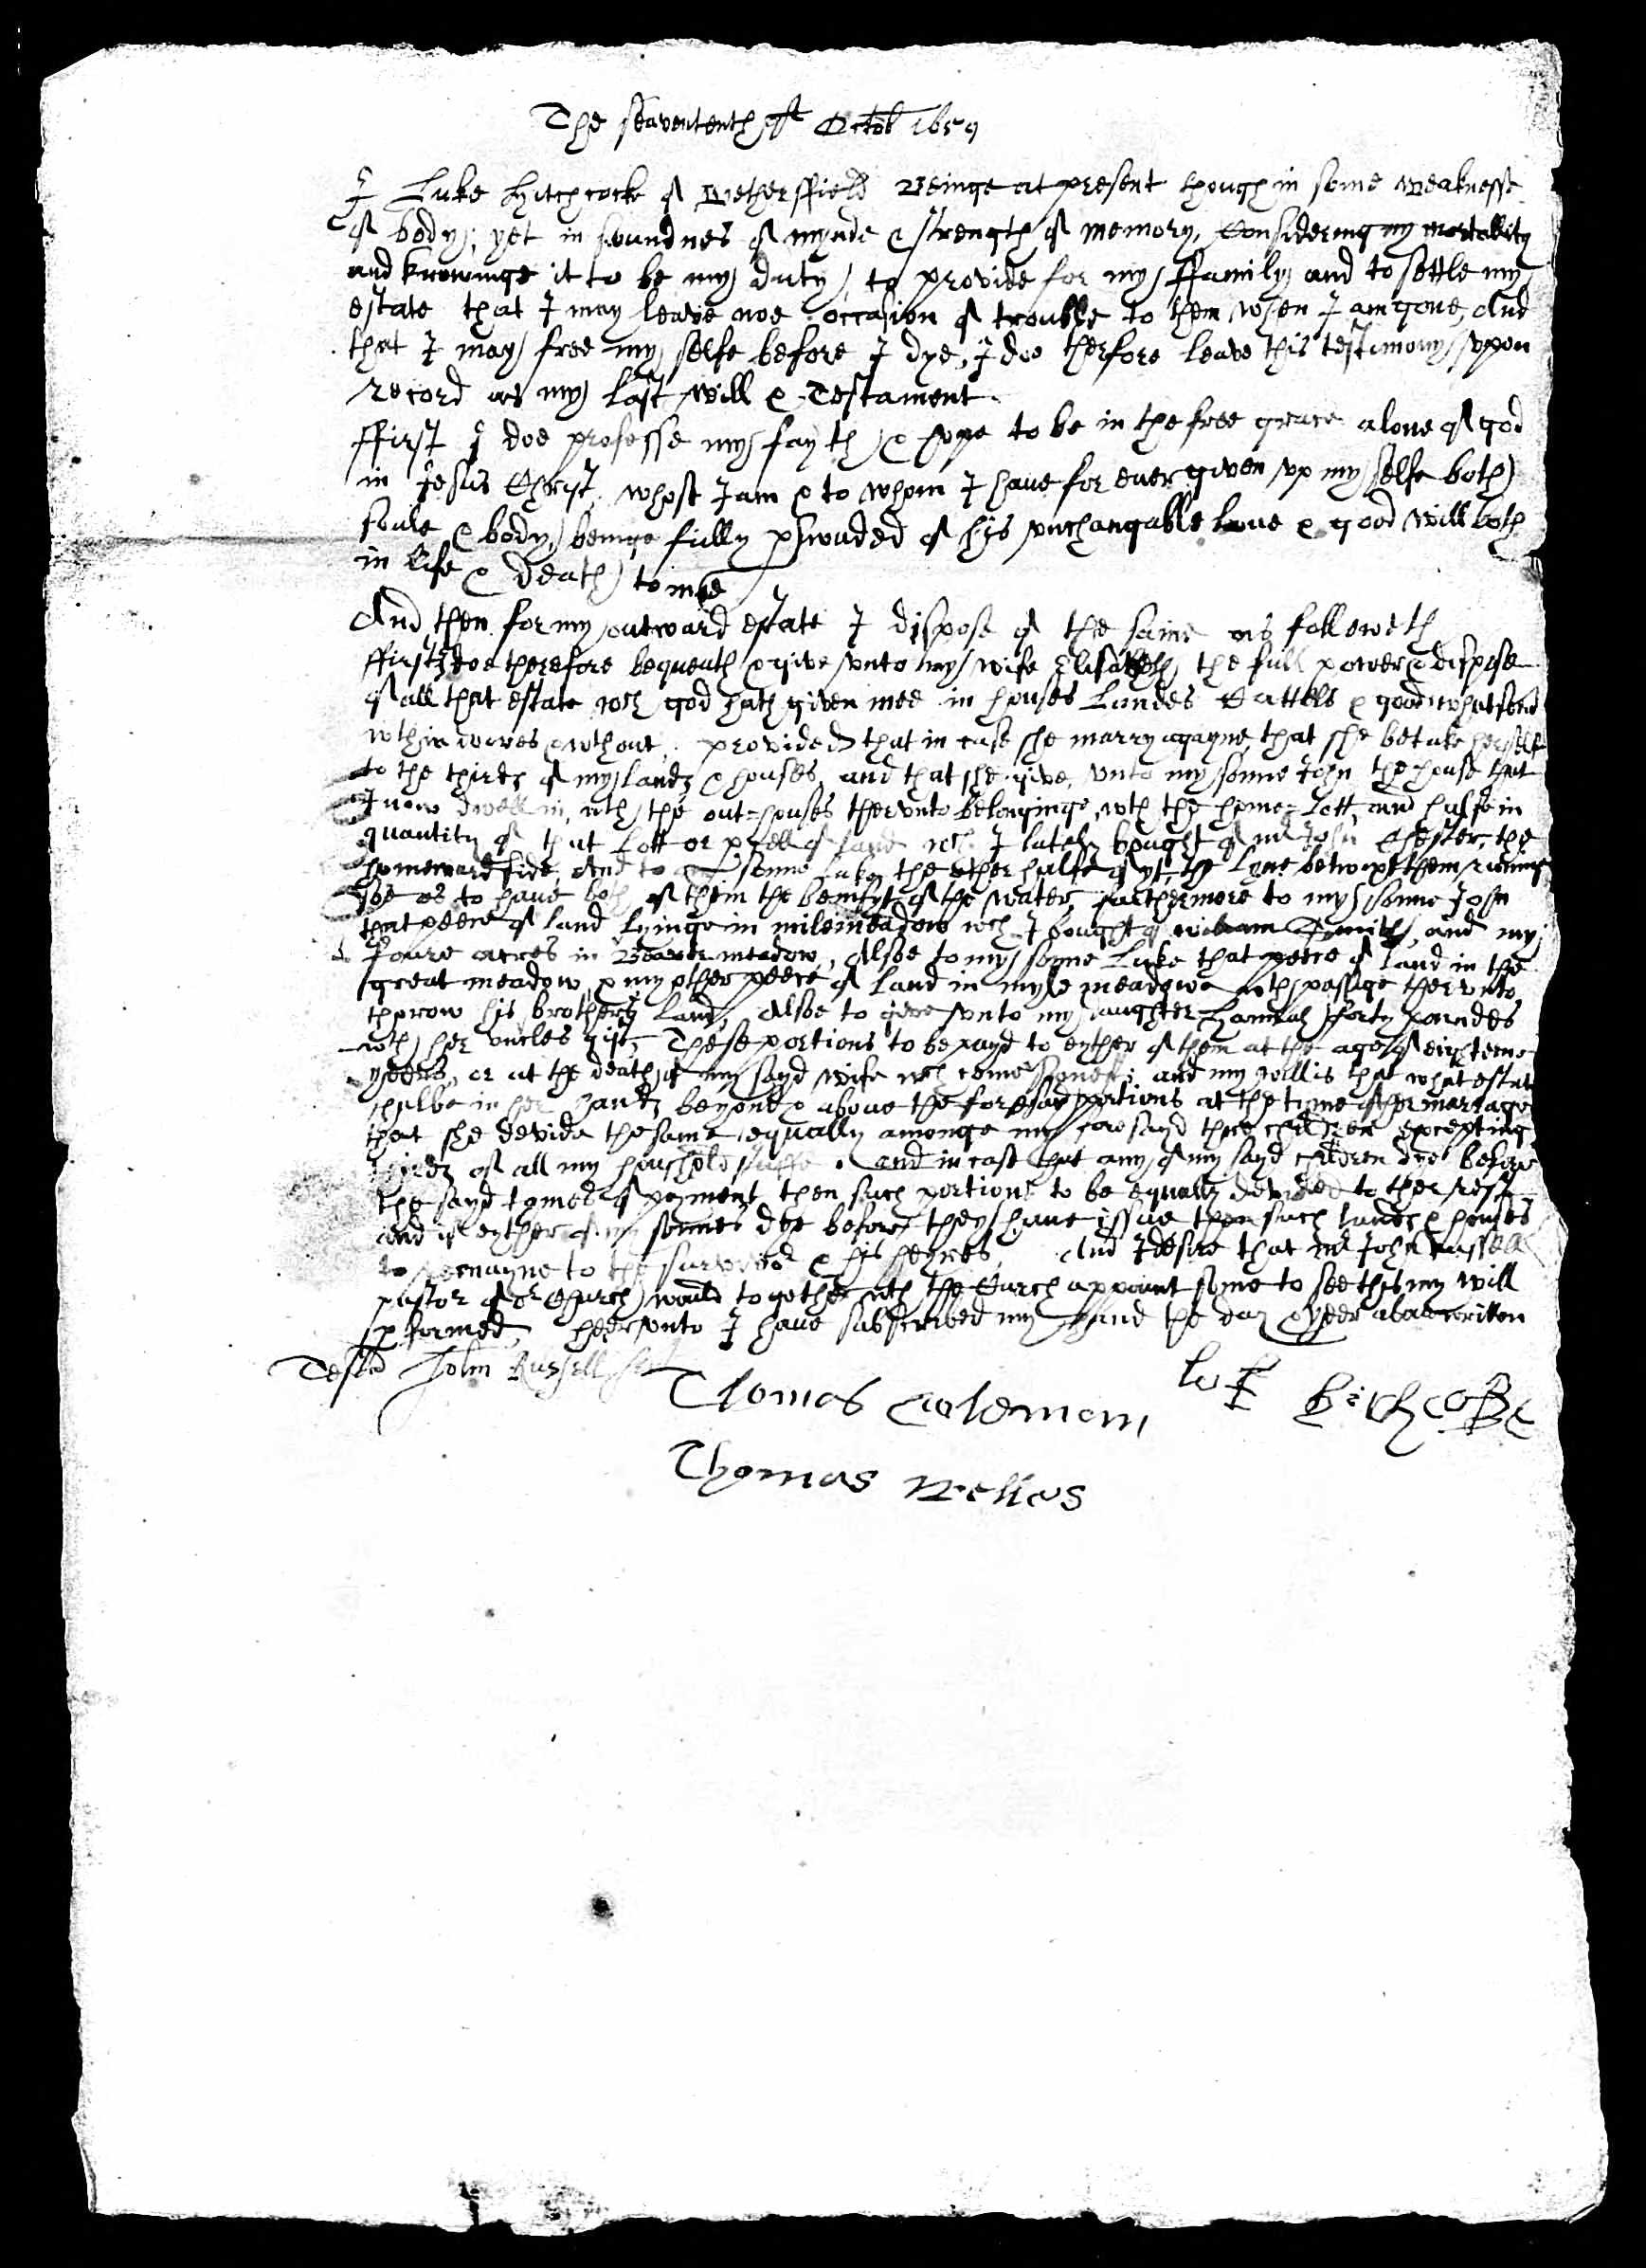 The seavententh of Octob 1659
I Luke Hitchcocke of Wethersffield Beinge at present though in some weaknesse
of body; yet in soundnes of mynde & strength of memory, Considering my mortallity
and knowinge it to be my duty, to provide for my ffamily and to settle my
estate that I may leave noe occasion of trouble to them when I am gone, And
that I may free my selfe before I dye, I doe therfore leave this testimony vpon
record as my last will & Testament.
ffirst I doe professe my fayth & hope to be in the free grace alone of god
in Jesus Christ, whose I am & to whom I haue for euer given vp my selfe both
soule & body, beinge fully pswaded of his vnchangable loue & good will both
in life & death to mee
And then for my outward estate I dispose of the same as followeth
ffirst I doe therefore bequeath & give vnto my wife Elisabeth the full power & dispose
of all that estate wch god hath given mee in houses Landes Cattells & goods whatsoeu
wthin dores & wthout, provided that in case she marry agayne, that she betake herselfe
to the thirds of my lands & houses, and that she give vnto my sonne John the house that
I now dwell in, wth the out=houses thervnto belonginge, wth the home=lott and halfe in
quantity of that Lott or pcell of land wch I lately bought of mr John Chester, the
homeward side, And to my sonne Luke the other halfe of yt, the Lyne betwixt them runing
soe as to haue both of them the benifyt of the water, furthermore to my sonne John
that peece of land lyinge in mile meadow wch I bought of William Smith, and my
foure acres in Beaver meadow, Alsoe to my sonne Luke that peece of land in the
great meadow, & my other peece of land in myle meadowe wth passage thervnto
thorow his brothers land, Alsoe to give vnto my daughter Hannah forty poundes
wth her vncles gift, These portions to be payd to eyther of them at the age of eighteene
yeeres, or at the death of my sayd wife wch come sonest; and my will is that what estat
shalbe in her hands beyond & above the foresayd portions at the time of her mariage
that she devide the same equally amonge my foresayd three children excepting
thirds of all my houshold stuffe. And in case that any of my sayd children dye before
the sayd tymes of payment then such portions to be equally devided to the rest
and if eyther of my sonnes dye before they haue issue then such lands & houses
to remayne to the survivor & his heyres, And I desire that mr John Russell
pastor of or Church would together wth the Church appoint some to see this my will
pformed, heervnto I haue subscribed my hand the day & yeer aboue written
Test John Russell
Thomas Coleman
Thomas Welles